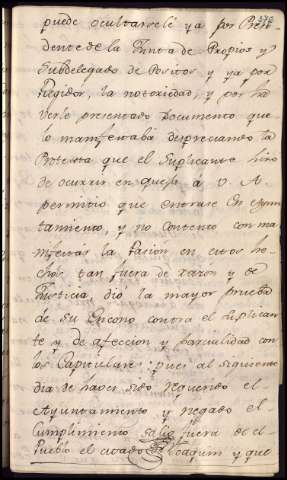 puede ocultarsele ya por Presi
dente de la Junta de Propios y
Subdelegado de Positos, y ya por
Regidor, la notoriedad, y por ha
verle presentado Documento que
lo manifestaba despreciando la
Protesta que el Suplicante hizo
de ocurrir en quexa á V. A.
permitio que entrase en Ayun
tamiento, y no contento con ma
nifestar la pasion en estos he
chos tan fuera de razon y de
Justicia, dio la mayor prueba
de su encono contra el Suplican
te y de afeccion y parcialidad con
los Capitulares pues al siguiente
dia de haver sido requerido el
Ayuntamiento y negado el
Cumplimiento salio fuera de el
Pueblo el citado Joaquin y que